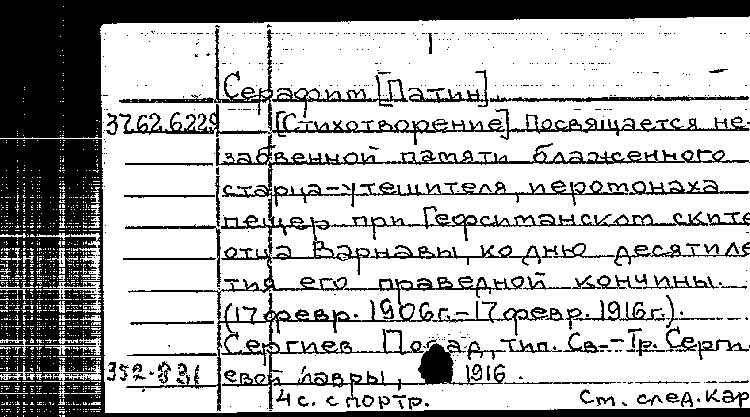 Серафим [Патин]
3762.6229 [Стихотворение] Посвящается не-
забвенной памяти блаженного
старца-утешителя, иеромонаха
пещер при Гефсиманском ските
отца Варнавы, ко дню десятиле-
тия его праведной кончины.
(17 февр. 1906г.-17 февр. 1916г.).
Сергиев Посад, тип. Св.-Тр. Серги-
352-831 евой лавры, 1916.
4 с. с портр. См. след. кар